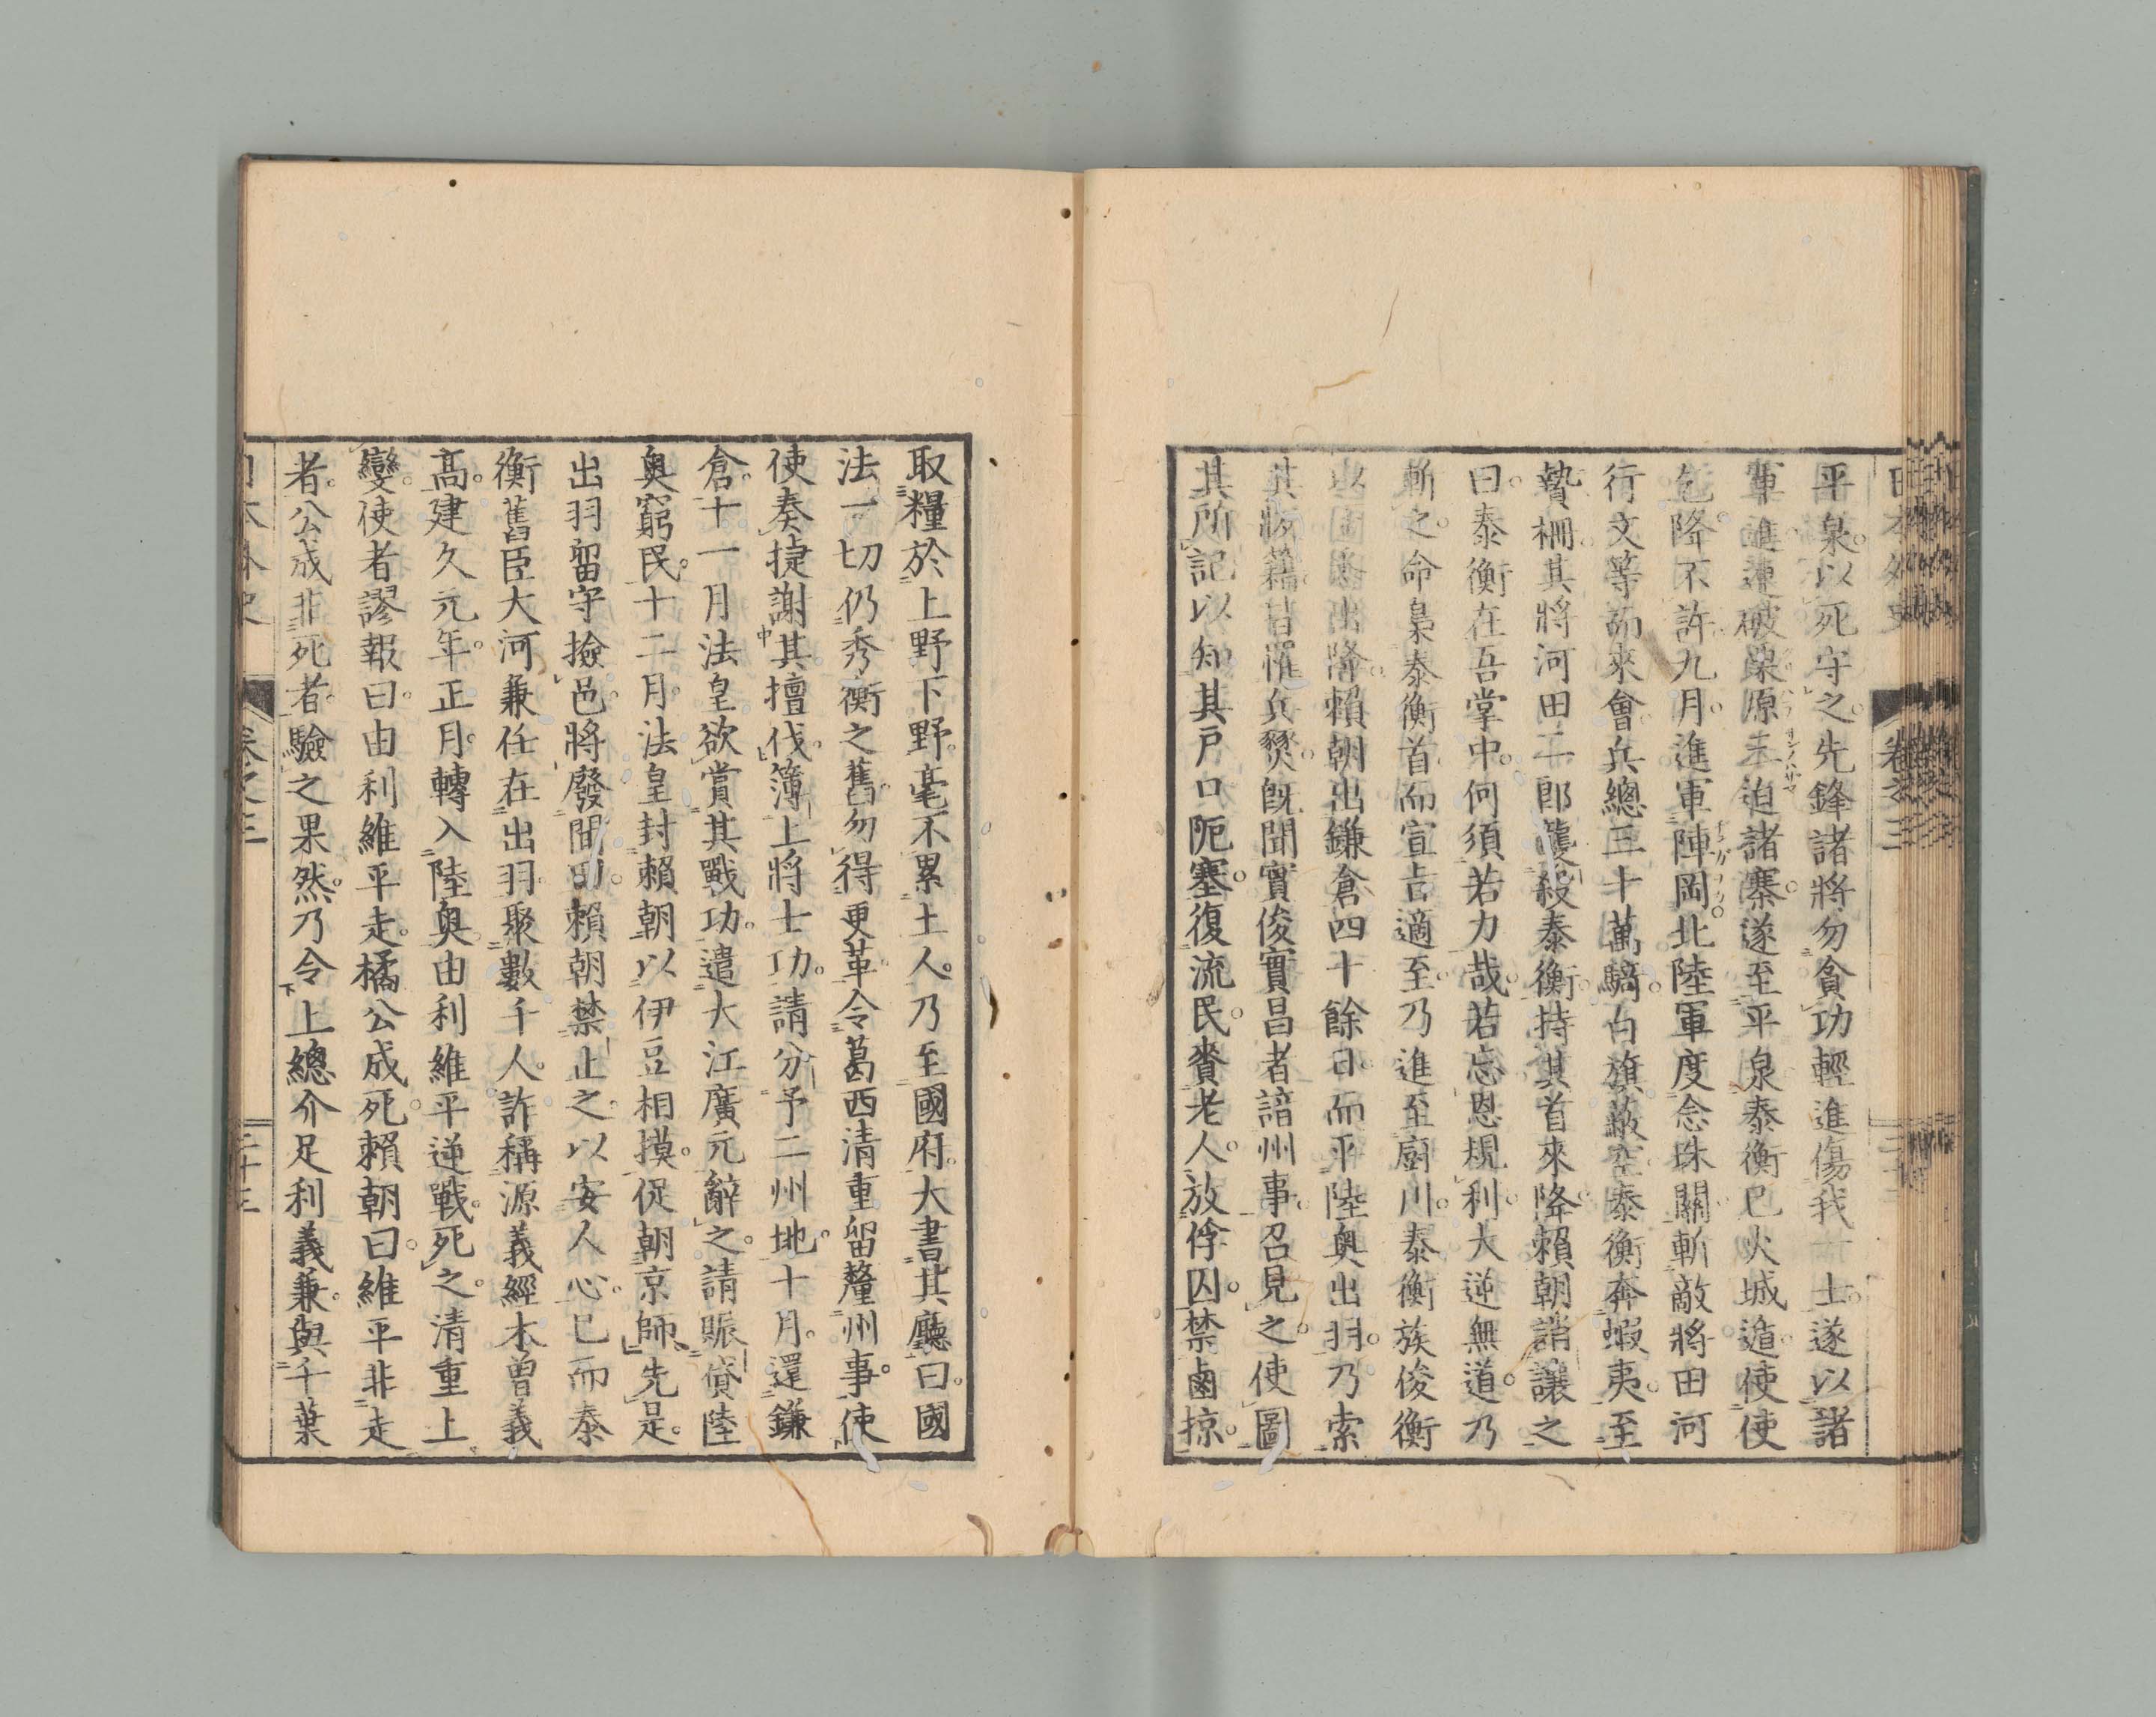 日本外史 卷之三
平泉以死守之先鋒諸將勿貪功輕進傷我一士遂以諸
軍進連破栗原三迫諸寨遂至平泉泰衡已火城遁使使
乞降不許九月進軍陣岡北陸軍度念珠關斬敵將田河
行文等而來會兵總三十萬騎白旗蔽空泰衡奔蝦夷至
贄柵其將河田二郎襲殺泰衡持其首來降賴朝誚讓之
曰泰衡在吾掌中何須若力哉若忘恩規利大逆無道乃
斬之命梟泰衡首而宣旨適至乃進至廚川泰衡族俊衡
以下降出降賴朝出鎌倉四十餘日而平陸奧出羽乃索
其版籍皆罹兵燹既聞實俊實昌者諳州事召見之使圖
其所記以知其戶口阨塞復流民賚老人放俘囚禁鹵掠
取糧於上野下野毫不累土人乃至國府大書其廳曰國
法一切仍秀衡之舊勿得更革令葛西清重留釐州事使
使奏捷謝其擅伐簿上將士功請分予二州地十月還鎌
倉十一月法皇欲賞其戰功遣大江廣元辭之請賑貸陸
奧窮民十二月法皇封賴朝以伊豆相摸促朝京師先是
出羽留守撿邑將廢間田賴朝禁止之以安人心已而泰
衡舊臣大河兼任在出羽聚數千人詐稱源義經木曾義
高建久元年正月轉入陸奧由利維平逆戰死之清重上
變使者謬報曰由利維平走橘公成死賴朝曰維平非走
者公成非死者驗之果然乃令上總介足利義兼與千葉
日本外史 卷之三 二十三